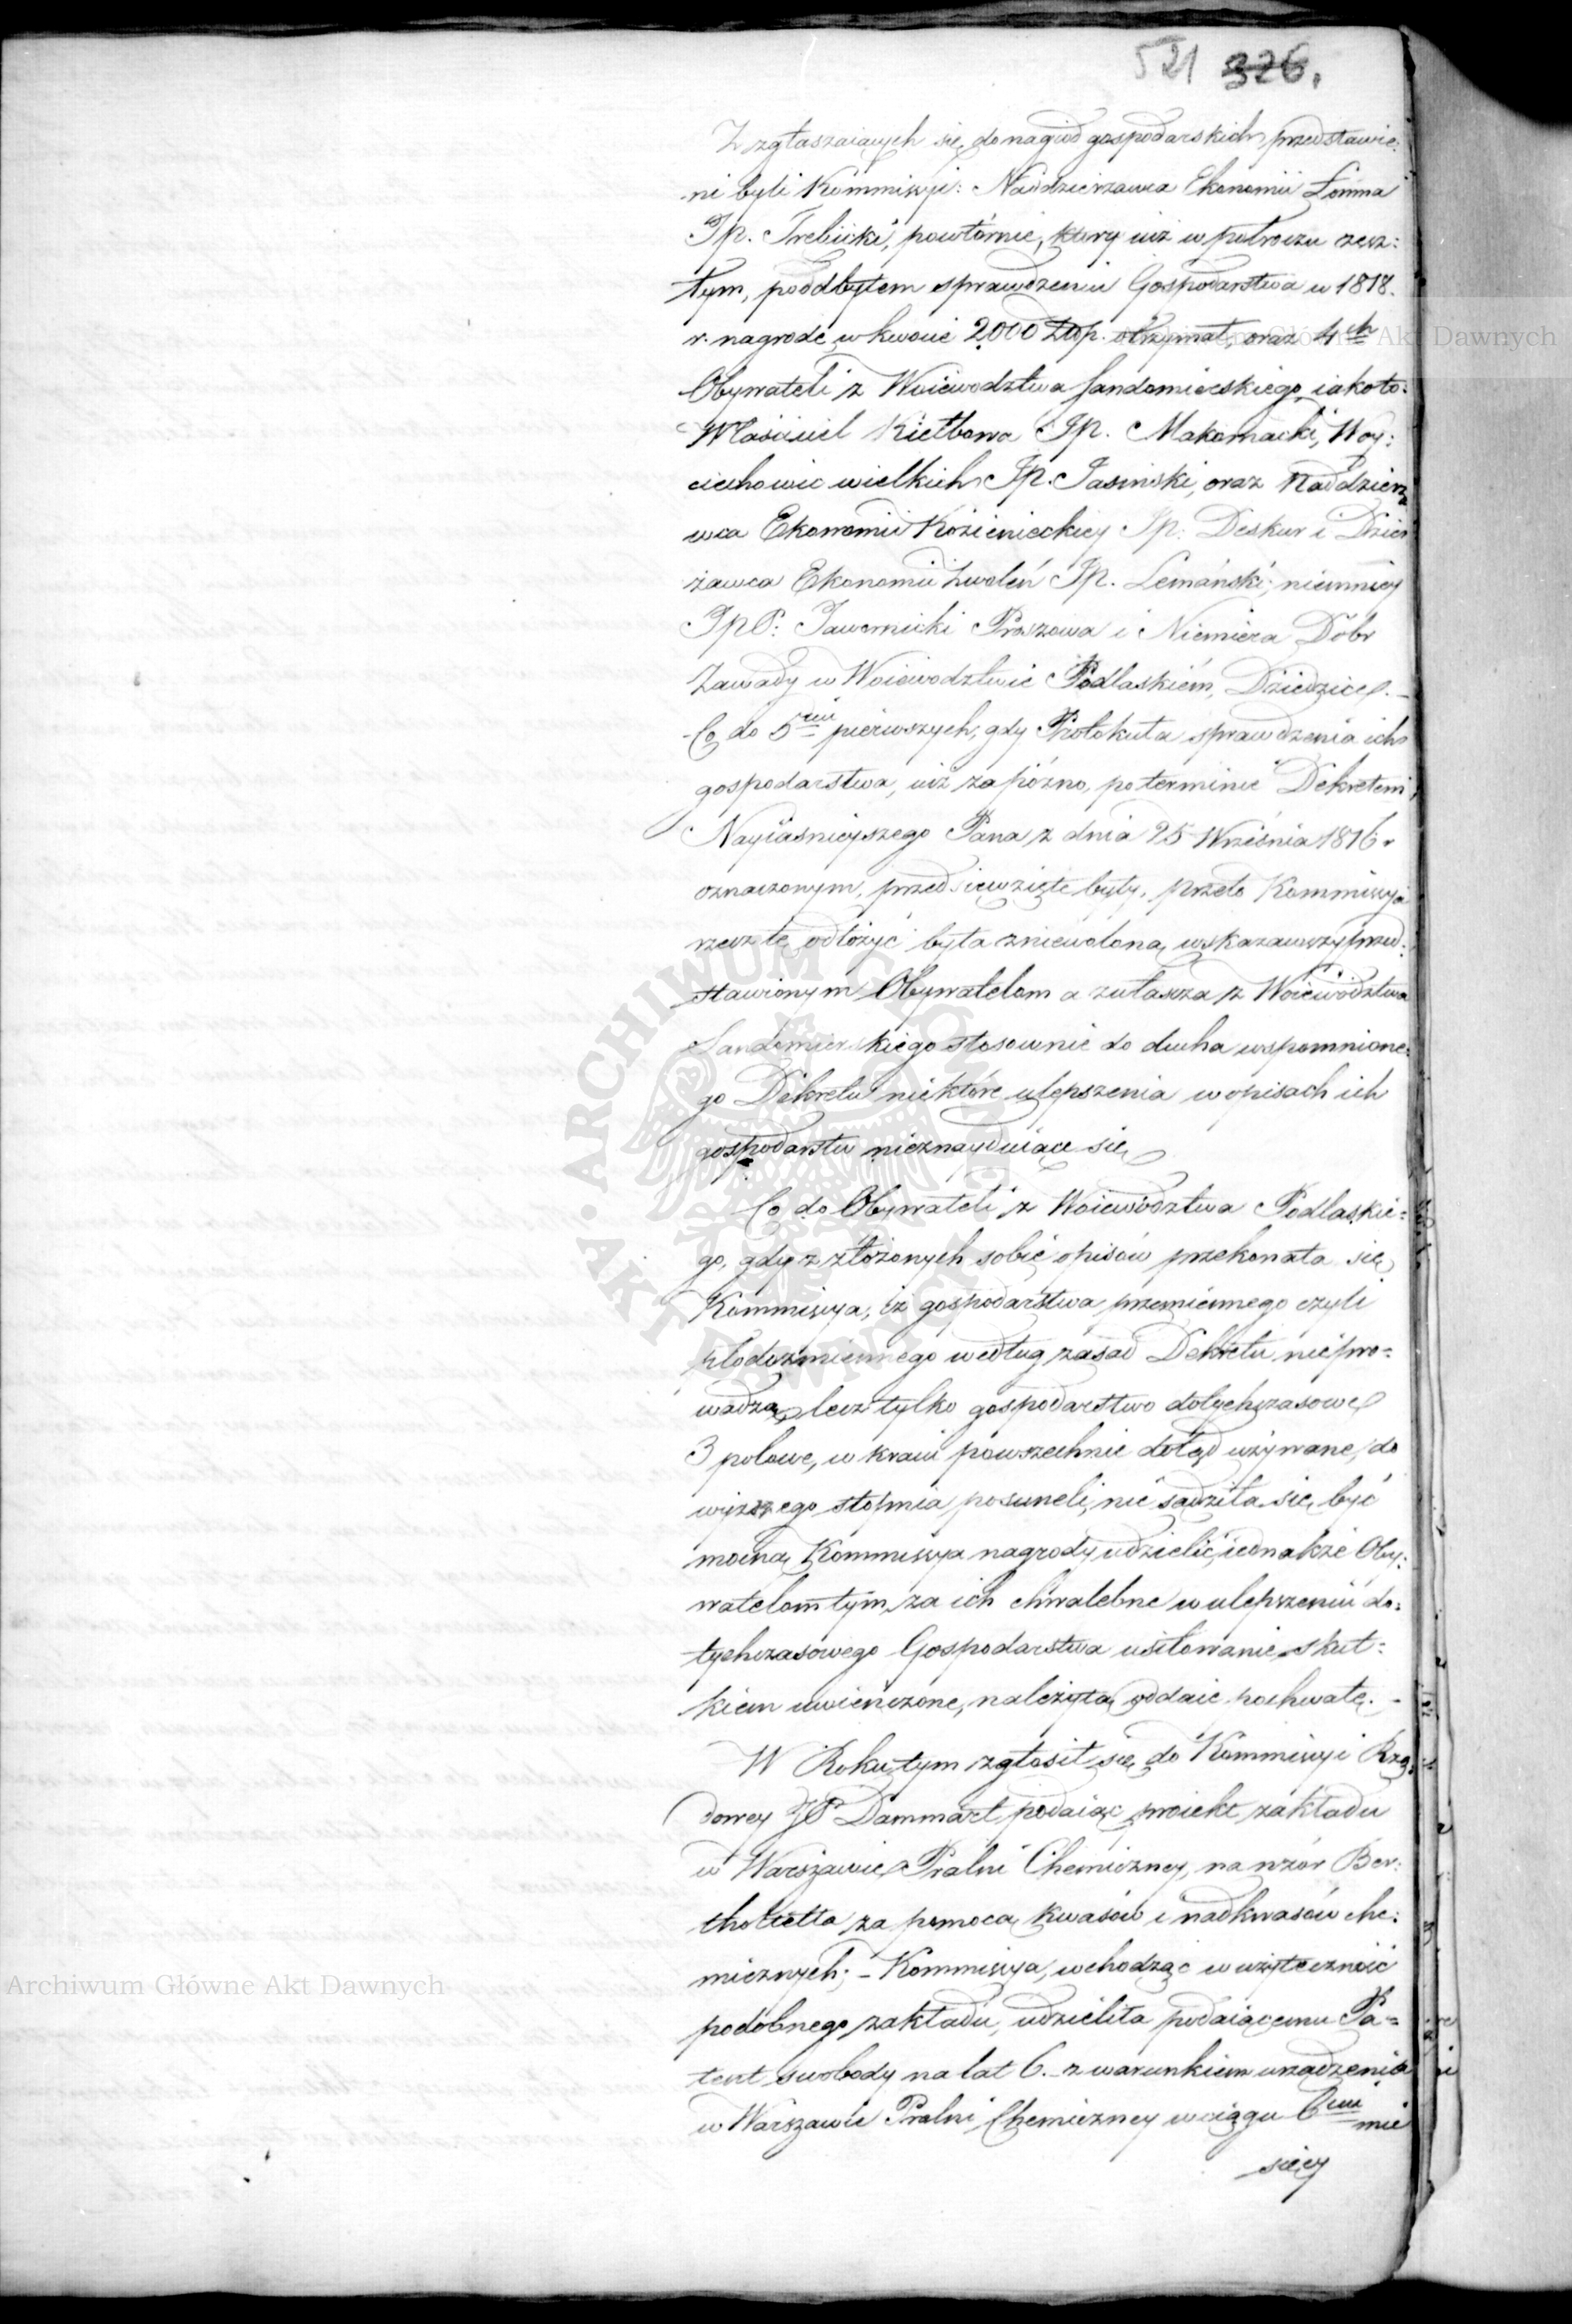 521 326.
Z zgłaszaiących się do nagród gospodarskich, przedstawie:
ni byli Kommissyi: Naddzierżawca Ekonomii Łomna
JP. Trębicki, powtórnie, który iuż w półroczu zesz:
łym, po odbytem sprawdzeniu Gospodarstwa w 1818.
r. nagrodę w kwocie 2000 Złp. otrzymał, oraz 4ch
Obywateli z Woiewodztwa Sandomierskiego, iako to:
Właściciel Kiełbowa JP. Makomacki, Woy:
ciechowic wielkich JP. Jasiński, oraz Naddzierża
wca Ekonomii Kozienieckiey JP: Deskur i Dzier
żawca Ekonomii Zwoleń JP. Lemański; niemniey
JPP: Jawornicki Proszowa i Niemiera Dóbr
Zawady w Woiewodztwie Podlaskiém, Dziedzice. –
Co do 5ciu pierwszych, gdy Protokuła sprawdzenia ich
gospodarstwa, iuż za późno, po terminie Dekretem
Nayiaśnieyszego Pana z dnia 25 Września 1816 r
oznaczonym, przedsięwzięte były, przeto Kommissya
rzecz tę odłożyć była zniewoloną, wskazawszy przed:
stawionym Obywatelom a zwłaszcza z Woiewództwa
Sandomierskiego stosownie do ducha wspomnione:
go Dekretu niektóre ulepszenia w opisach ich
gospodarstw nieznayduiące się.
Co do Obywateli z Woiewództwa Podlaskie:
go, gdy z złożonych sobie opisów przekonała się
Kommissya, iż gospodarstwa przemiennego czyli
płodozmiennego według zasad Dekretu nie pro=
wadzą, lecz tylko gospodarstwo dotychczasowe
3 polowe, w kraiu powszechnie dotąd używane, do
wyższego stopnia posuneli, nie sądziła się być
mocną Kommissya nagrody udzielić, iednakże Oby:
watelom tym, za ich chwalebne w ulepszeniu do:
tychczasowego Gospodarstwa usiłowanie skut=
kiem uwieńczone, należytą oddaie pochwałę. –
W Roku tym zgłosił się do Kommissyi Rzą
dowey JP Dammart podaiąc proiekt zakładu
w Warszawie Pralni Chemiczney, na wzór Ber:
tholletta za pomocą kwasów i nadkwasów che:
micznych; – Kommissya, wchodząc w użyteczność
podobnego zakładu, udzieliła podaiącemu Pa=
tent swobody na lat 6. z warunkiem urządzenia
w Warszawie Pralni Chemiczney w ciągu 6ciu mie
sięcy
Archiwum Główne Akt Dawnych
Archiwum Główne Akt Dawnych
ARCHIWUM GŁÓWNE AKT DAWNYCH